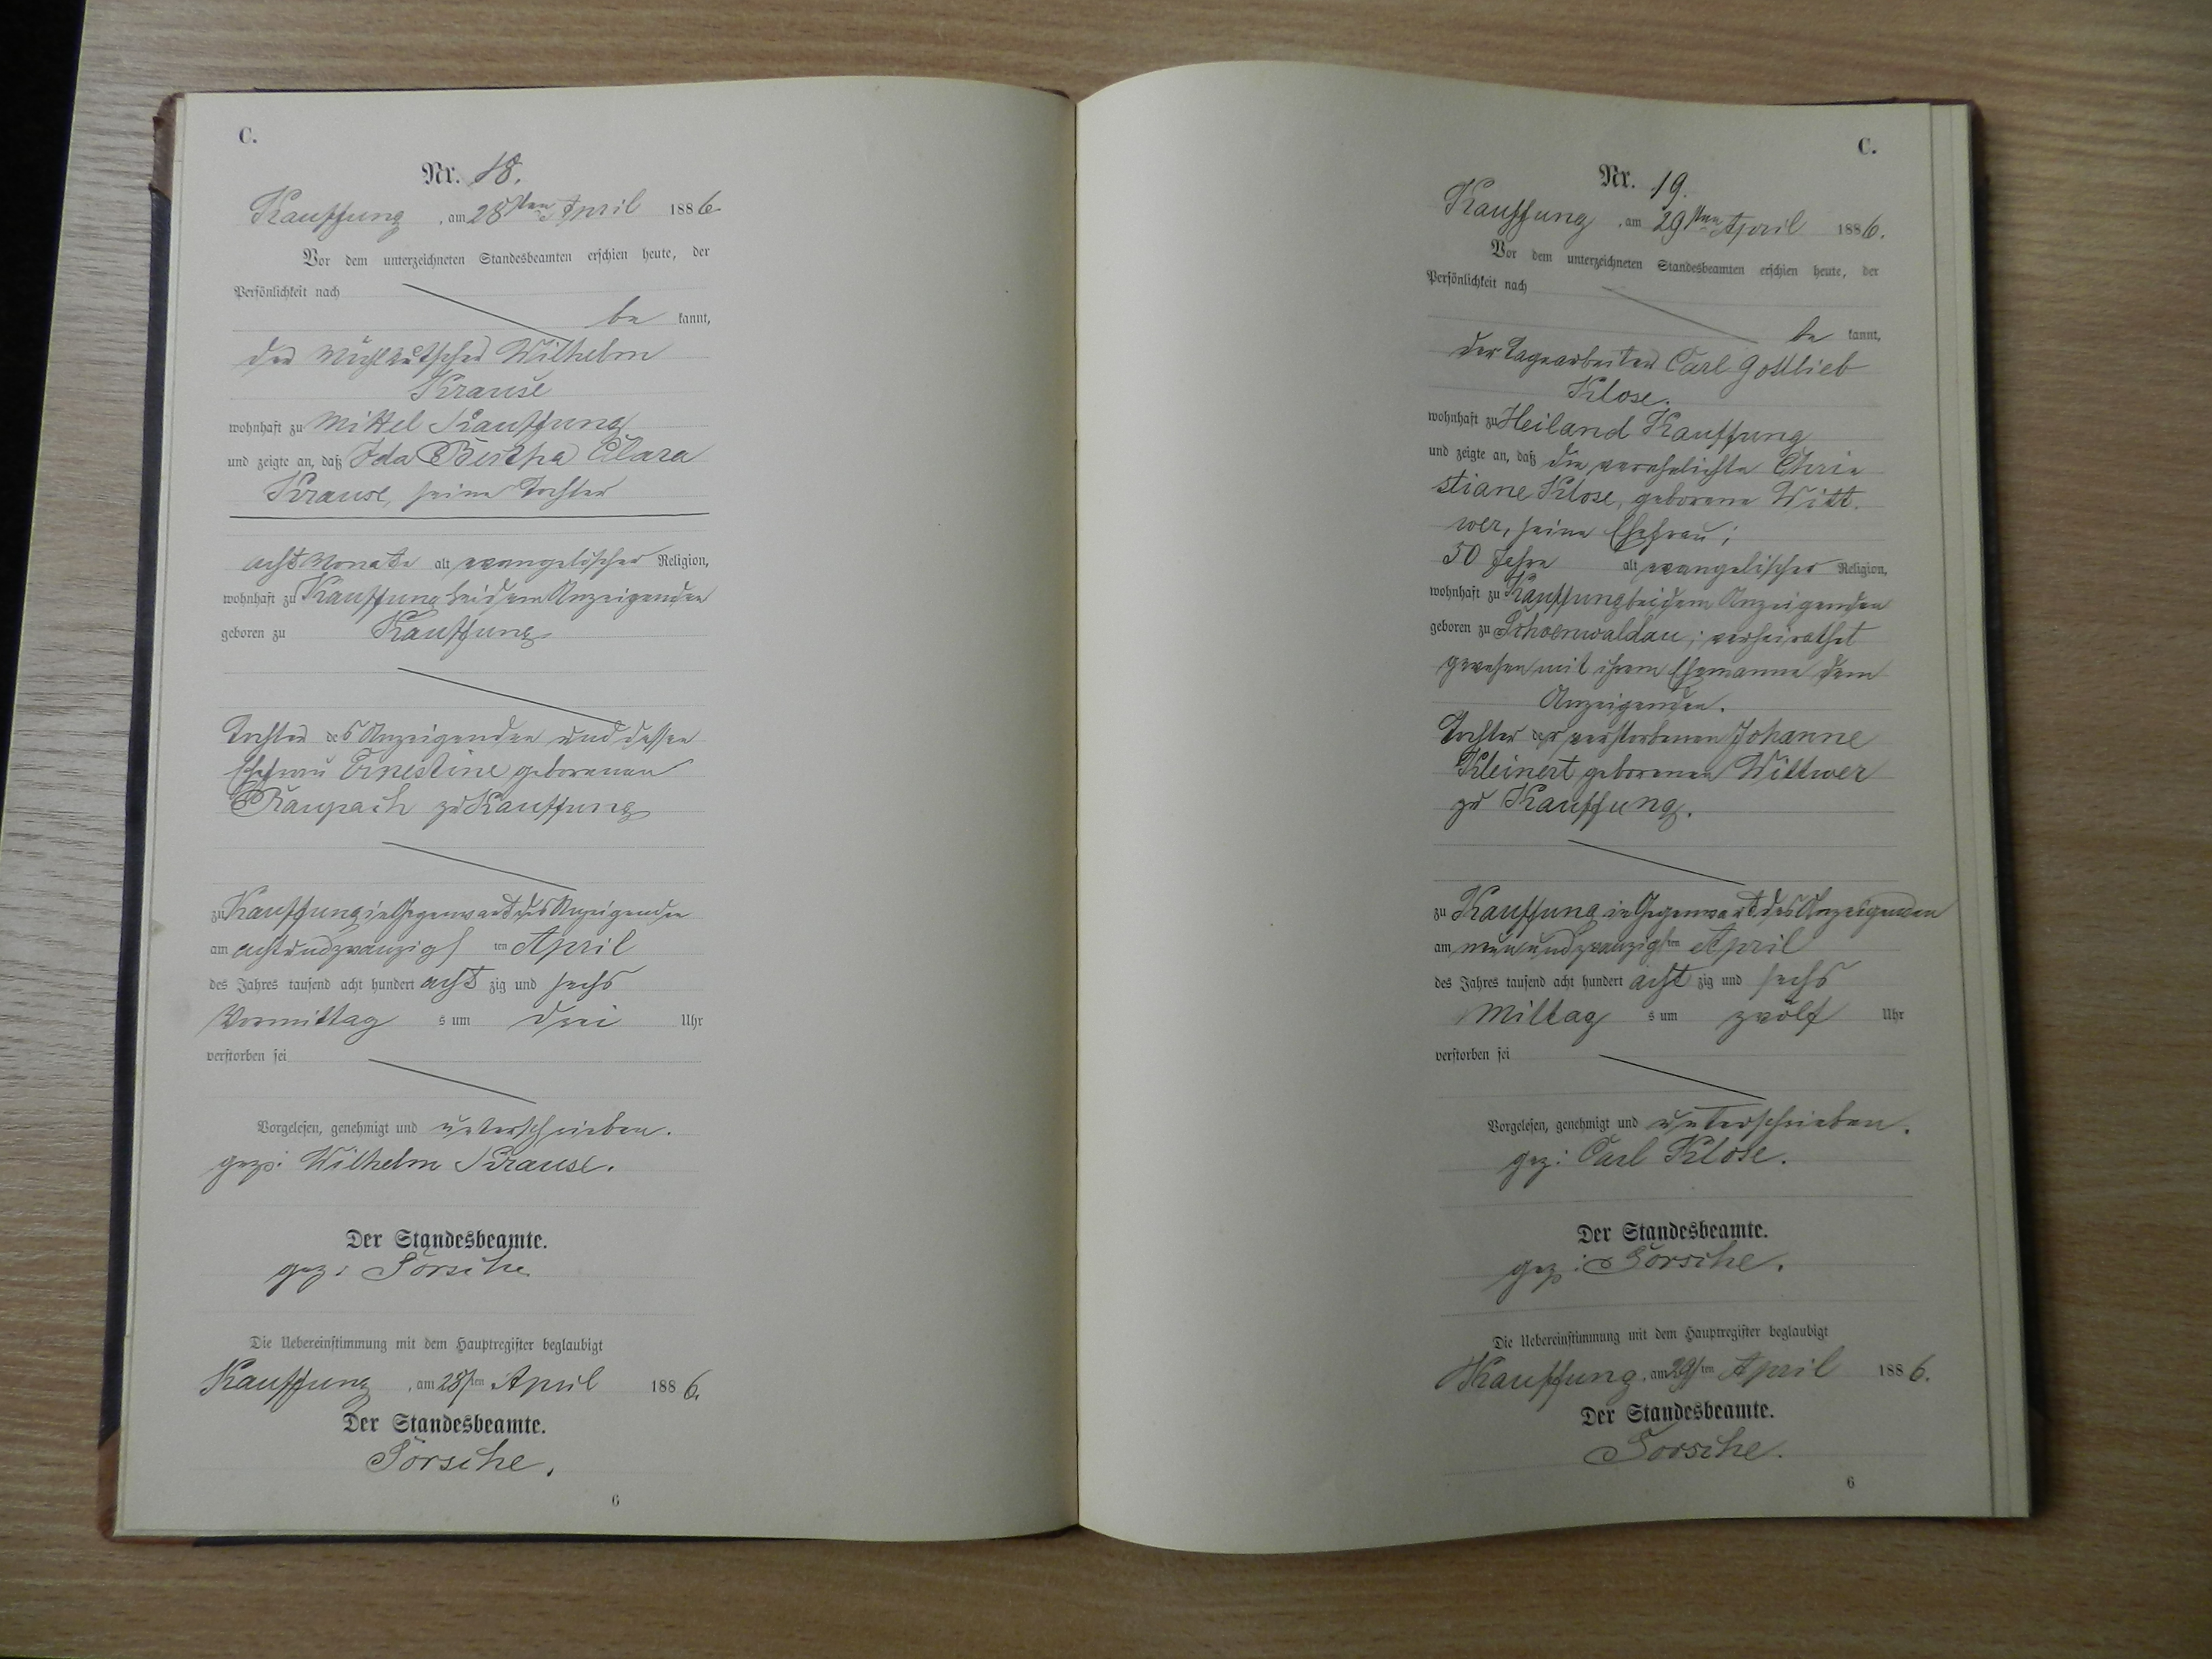 C.
Nr. 18.
Kauffung, am 28sten April 1886.
Vor dem unterzeichneten Standesbeamten erschien heute, der
Persönlichkeit nach
be kannt,
der Mühlkutscher Wilhelm
Krause
wohnhaft zu Mittel Kauffung
und zeigte an, daß Ida Bertha Clara
Krause, seine Tochter
acht Monate alt evangelischer Religion,
wohnhaft zu Kauffung bei dem Anzeigenden
geboren zu Kauffung
Tochter des Anzeigenden und dessen
Ehefrau Ernestine geborenen
Raupach zu Kauffung
zu Kauffung in Gegenwart des Anzeigenden
am achtundzwanzigsten April
des Jahres tausend acht hundert acht zig und sechs
Vormittag s um drei Uhr
verstorben sei
Vorgelesen, genehmigt und unterschrieben.
gez: Wilhelm Krause.
Der Standesbeamte.
gez:
Die Uebereinstimmung mit dem Hauptregister beglaubigt
Kauffung, am 28sten April 1886.
Der Standesbeamte.
6
C.
Nr. 19.
Kauffung, am 29sten April 1886.
Vor dem unterzeichneten Standesbeamten erschien heute, der
Persönlichkeit nach
be kannt,
der Tagearbeiter Carl Gottlieb
Klose.
wohnhaft zu Heiland Kauffung
und zeigte an, daß die verehelichte Chri-
stiane Klose, geborene Witt-
wer, seine Ehefrau;
50 Jahre alt evangelischer Religion,
wohnhaft zu Kauffung bei dem Anzeigenden
geboren zu Schoenwaldau; verheirathet
gewesen mit ihrem Ehemanne dem
Anzeigenden.
Tochter der verstorbenen Johanne
Kleinert geborenen Wittwer
zu Kauffung.
zu Kauffung in Gegenwart des Anzeigenden
am neunundzwanzigsten April
des Jahres tausend acht hundert acht zig und sechs
Mittag s um zwölf Uhr
verstorben sei
Vorgelesen, genehmigt und unterschrieben.
gez: Carl Klose.
Der Standesbeamte.
gez:
Die Uebereinstimmung mit dem Hauptregister beglaubigt
Kauffung, am 29sten April 1886.
Der Standesbeamte.
6